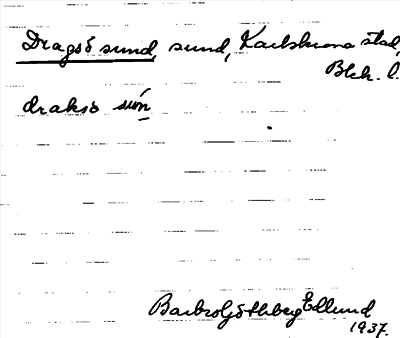 Dragsö sund, sund, Karlskrona stad,
Blek. l.
draksö sún
Barbro Göthberg Edlund
1937.